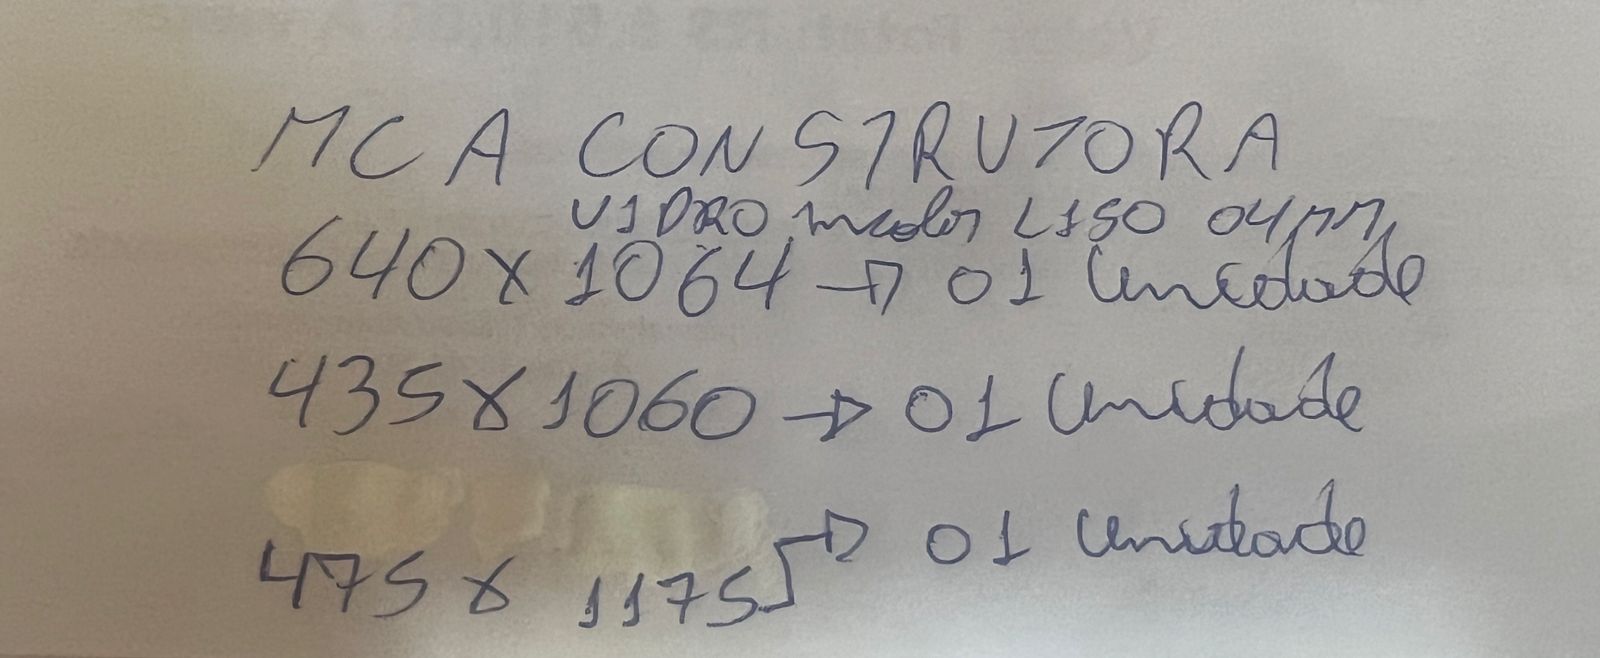 MCA CONSTRUTORA
VIDRO incolor LISO 04MM
640 x 1064 → 01 Unidade
435 x 1060 → 01 Unidade
475 x 1175 → 01 Unidade